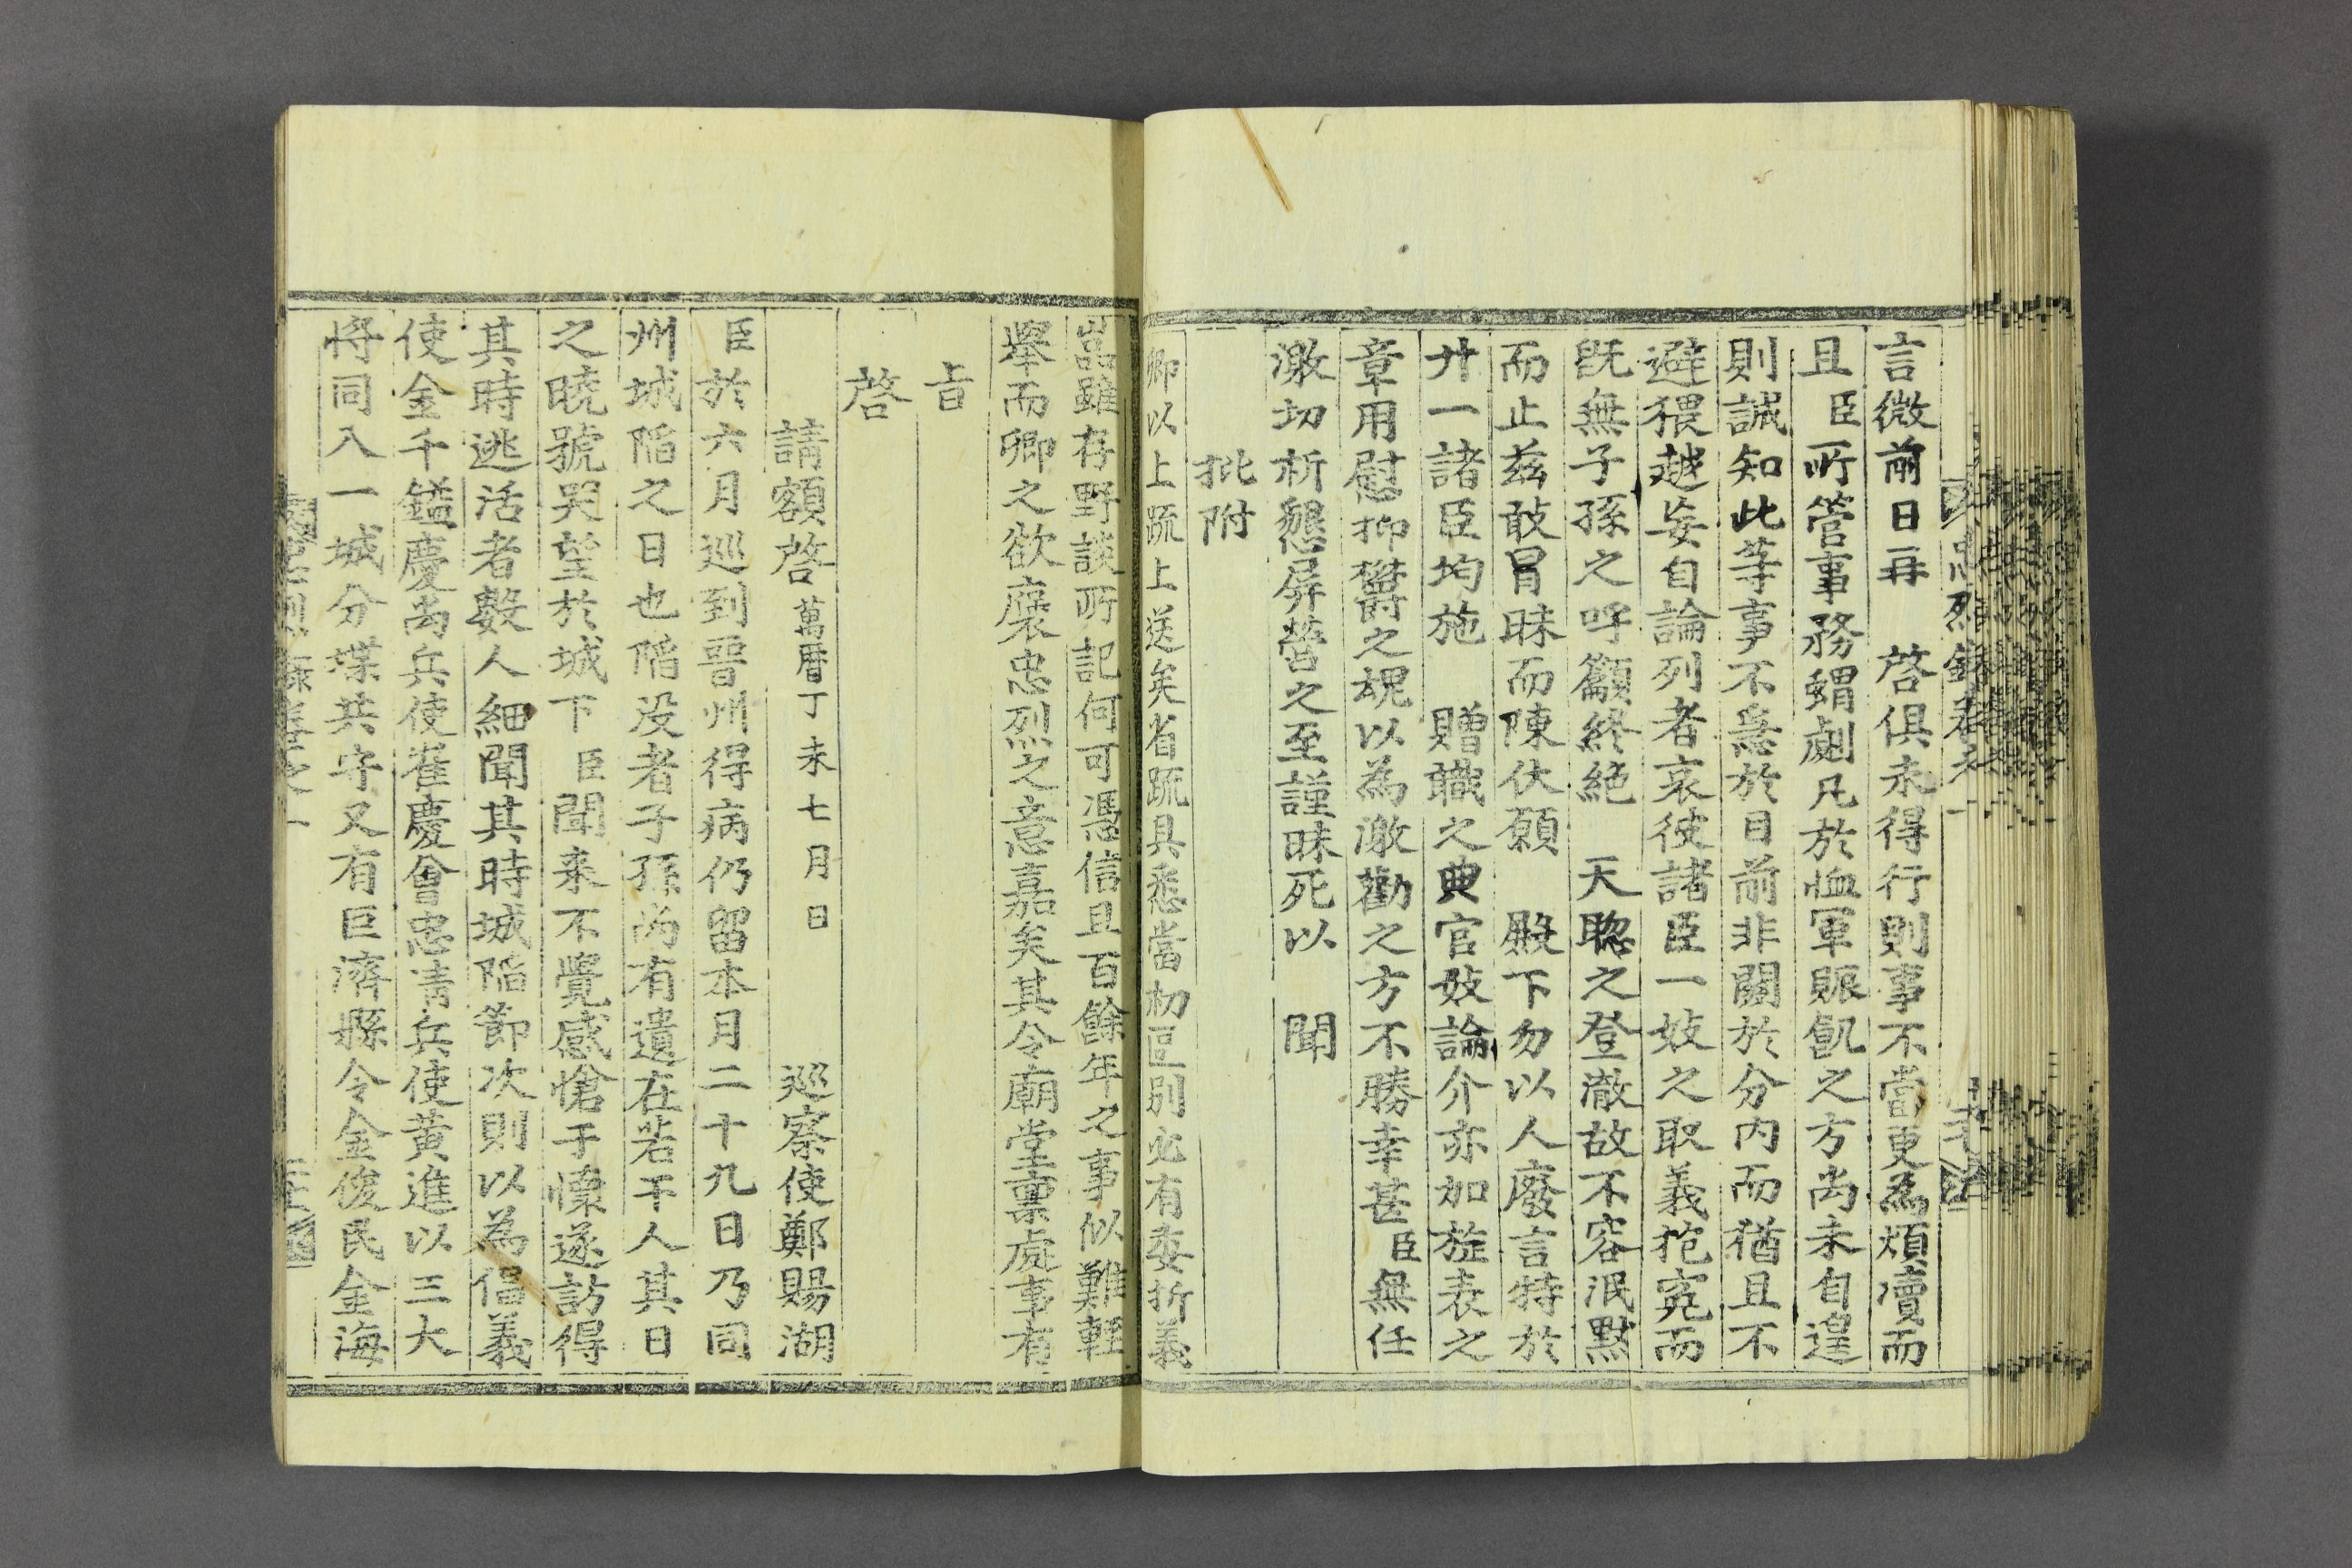 忠烈錄卷之一
言微前日再 啓俱未得行則事不當更爲煩瀆而
且臣所管事務蝟劇凡於恤軍賑飢之方尚未自遑
則誠知此等事不急於目前非關於分內而猶且不
避猥越妄自論列者哀彼諸臣一妓之取義抱寃而
旣無子孫之呼籲終絶 天聦之登澈故不容泯黙
而止玆敢冒昧而陳伏願 殿下勿以人廢言特於
廿一諸臣均施 贈職之典官妓論介亦加旌表之
章用慰抑欝之魂以為激勸之方不勝幸甚臣無任
激切祈懇屏營之至謹昧死以 聞
批附
卿以上疏上送矣省疏具悉當初區別必有委折義
嵓雖存野談所記何可憑信且百餘年之事似難輕
擧而卿之欲褒忠烈之意嘉矣其令廟堂稟處事有
旨
啓
請額啓 萬曆丁未七月日 巡察使鄭賜湖
臣於六月巡到晉州得病仍留本月二十九日乃同
州城陷之日也陷没者子孫尚有遺在若干人其日
之曉號哭望於城下臣聞來不覺感愴于懷遂訪得
其時逃活者數人細聞其時城陷節次則以為倡義
使金千鎰慶尚兵使崔慶會忠清兵使黄進以三大
將同入一城分堞共守又有巨濟縣令金俊民金海